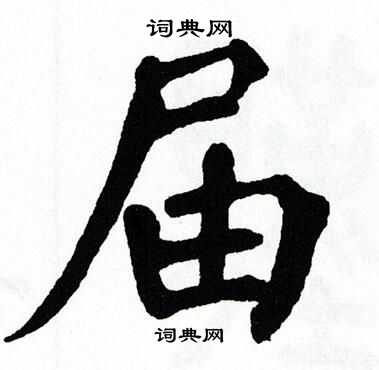 词典网
届
词典网